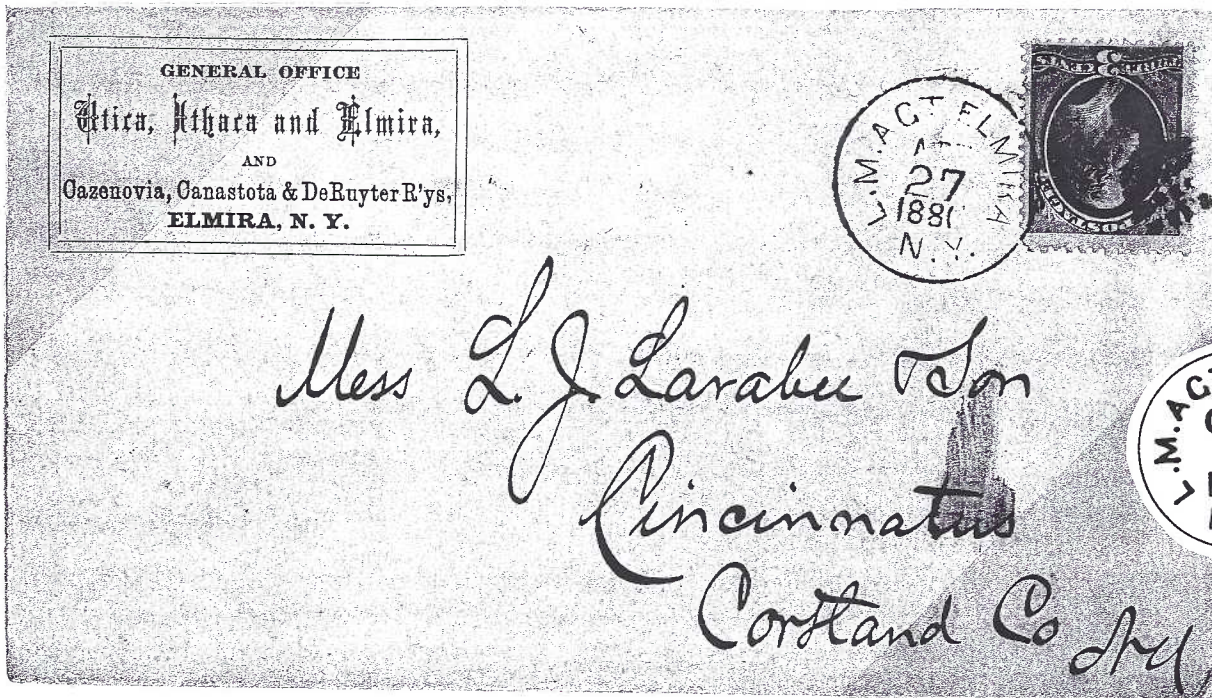 GENERAL OFFICE
Utica, Ithaca and Elmira,
AND
Cazenovia, Canastota & DeRuyter R'ys,
ELMIRA, N. Y.
L.M. AGT ELMIRA
27
1881
N.Y.
POSTAGE
Mess L. J. Larabee & Son
Cincinnatus
Cortland Co NY
L.M. AG